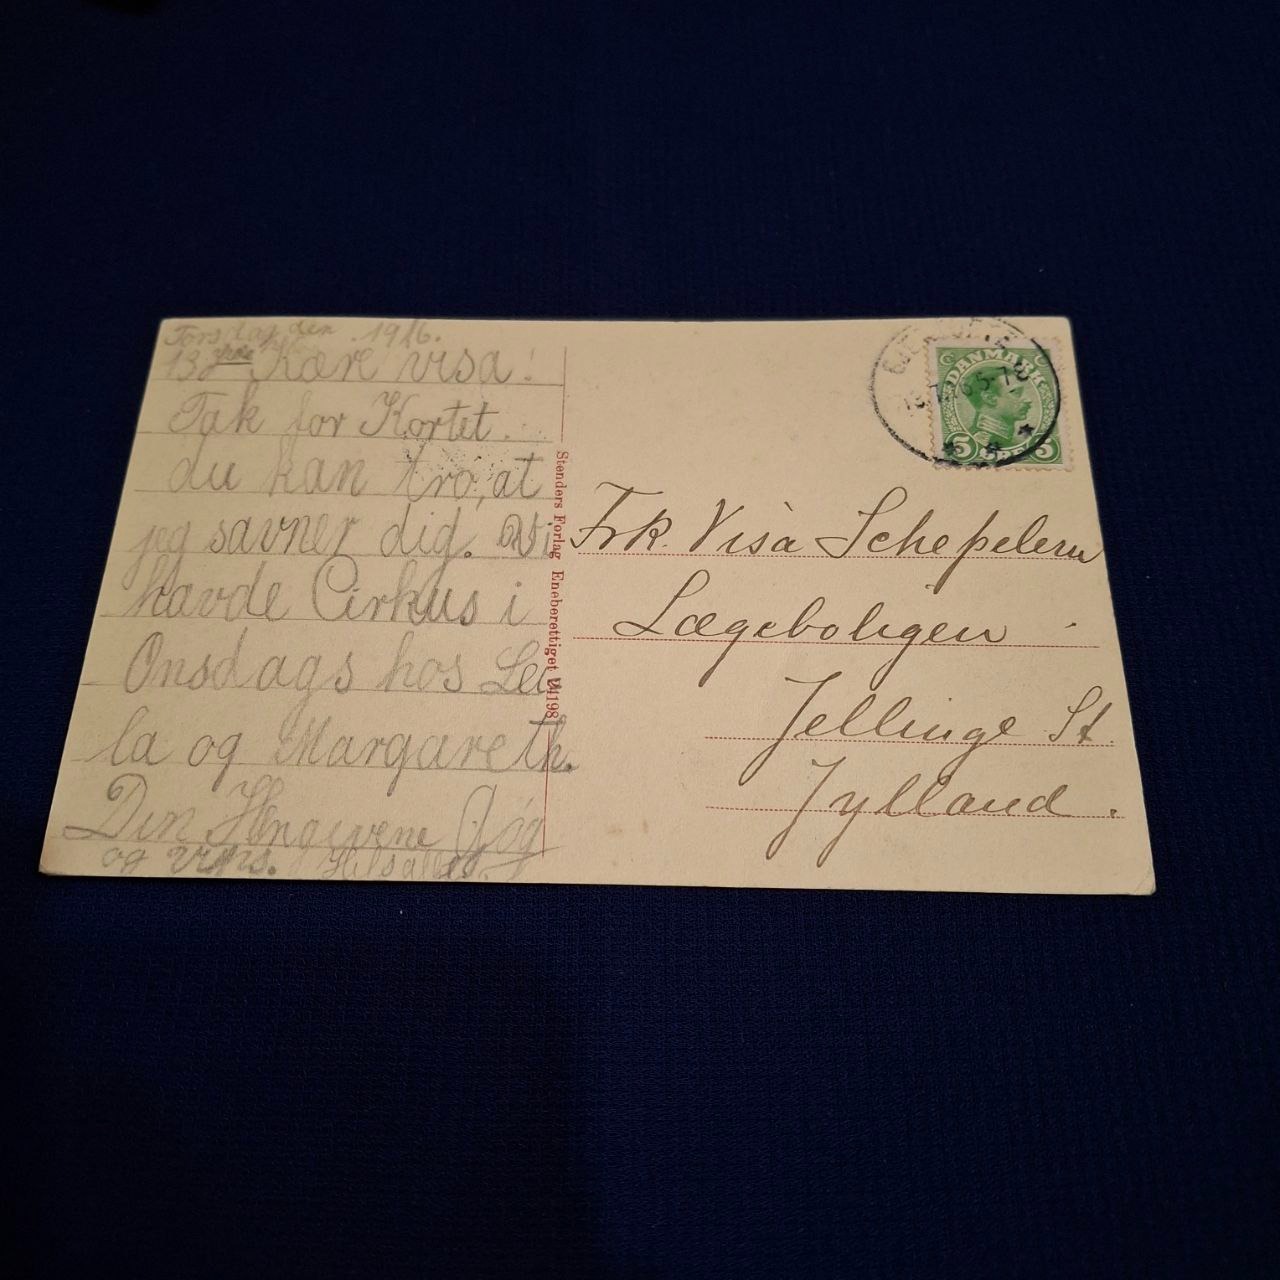 Torsdag den 1916.
13 Kære Visa!
Tak for Kortet.
du kan tro, at
jeg savner dig. Vi
havde Cirkus i
Onsdags hos Lei
la og Margareth.
Din Hengivene
og
Stenders Forlag Eneberettiget
DANMARK
5 ØRE 5
Frk. Visa Schepelern
Lægeboligen
Jellinge St.
Jylland.